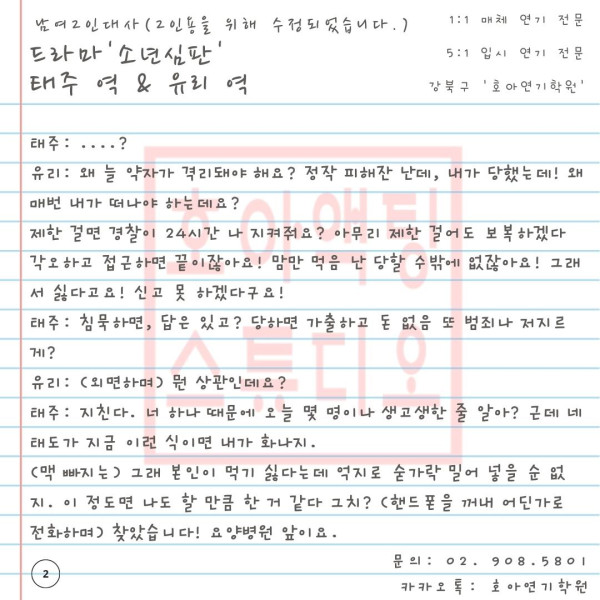 남여2인대사(2인용을 위해 수정되었습니다.)
드라마'소년심판'
태주 역 & 유리 역
1:1 매체 연기 전문
5:1 입시 연기 전문
강북구 '호아연기학원'
태주: ....?
유리: 왜 늘 약자가 격리돼야 해요? 정작 피해잔 난데, 내가 당했는데! 왜
매번 내가 떠나야 하는데요?
제한 걸면 경찰이 24시간 나 지켜줘요? 아무리 제한 걸어도 보복하겠다
각오하고 접근하면 끝이잖아요! 맘만 먹음 난 당할 수밖에 없잖아요! 그래
서 싫다고요! 신고 못 하겠다구요!
태주: 침묵하면, 답은 있고? 당하면 가출하고 돈 없음 또 범죄나 저지르
게?
유리: (외면하며) 뭔 상관인데요?
태주: 지친다. 너 하나 때문에 오늘 몇 명이나 생고생한 줄 알아? 근데 네
태도가 지금 이런 식이면 내가 화나지.
(맥 빠지는) 그래 본인이 먹기 싫다는데 억지로 숟가락 밀어 넣을 순 없
지. 이 정도면 나도 할 만큼 한 거 같다 그치? (핸드폰을 꺼내 어딘가로
전화하며) 찾았습니다! 요양병원 앞이요.
호아액팅
스튜디오
2
문의: 02. 908.5801
카카오톡: 호아연기학원